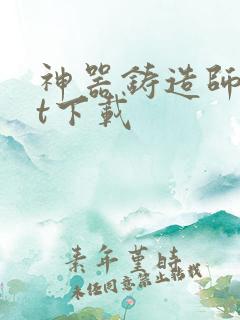 神器鋳造師
t下載
素年堇時
未经同意禁止转载